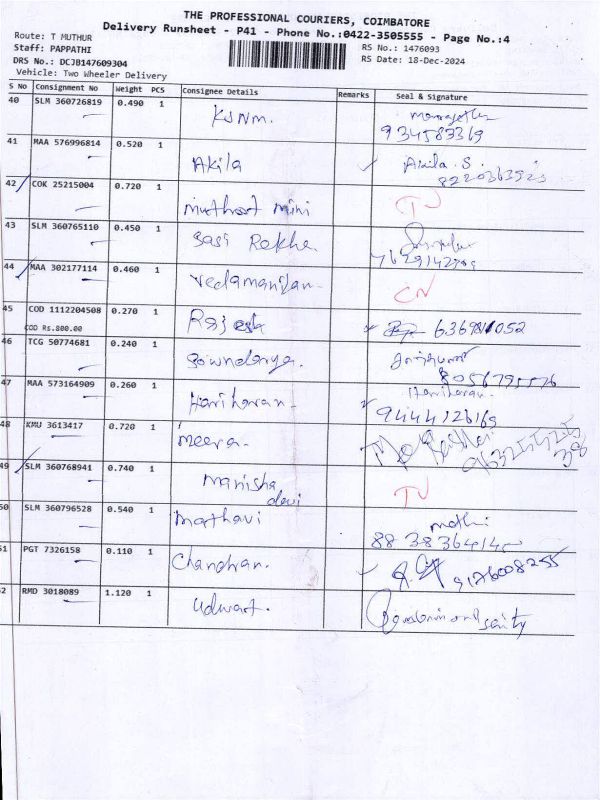 THE PROFESSIONAL COURIERS, COIMBATORE
Delivery Runsheet - P41 - Phone No.:0422-3505555 - Page No.:4
Route: T MUTHUR
RS No.: 1476093
Staff: PAPPATHI
RS Date: 18-Dec-2024
DRS No.: DCJB147609304
Vehicle: Two Wheeler Delivery
S No Consignment No Weight PCS Consignee Details Remarks Seal & Signature
40 SLM 360726819 0.490 1 KSNM.
934583369
41 MAA 576996814 0.520 1 Akila Akila . S.
42 COK 25215004 0.720 1 Muthoot mini
43 SLM 360765110 0.450 1 Sasi Rekha.
44 MAA 302177114 0.460 1 Vedamanikan CN
45 COD 1112204508 0.270 1 Rajesh
COD Rs.800.00
46 TCG 50774681 0.240 1 Sowndarya.
8056795576
47 MAA 573164909 0.260 1 Hariharan Hariharan
9444126169
48 KMU 3613417 0.720 1 Meera.
49 SLM 360768941 0.740 1 Manisha devi
50 SLM 360796528 0.540 1 Mathavi mathi
51 PGT 7326158 0.110 1 Chandran. 9176008255
52 RMD 3018089 1.120 1